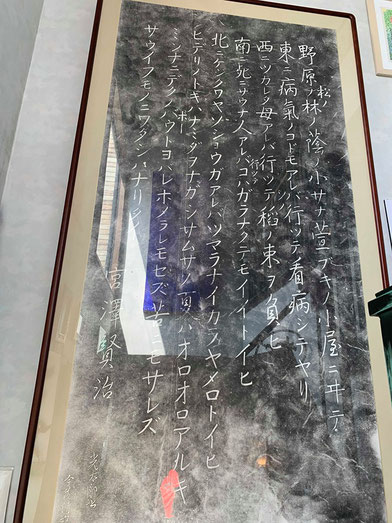 野原ノ松ノ林ノ蔭ノ小サナ萱ブキノ小屋ニヰテ
東ニ病気ノコドモアレバ行ッテ看病シテヤリ
西ニツカレタ母アレバ行ッテ稲ノ束ヲ負ヒ
南ニ死ニサウナ人アレバ行ッテコハガラナクテモイイトイヒ
北ニケンクヮヤソショウガアレバツマラナイカラヤメロトイヒ
ヒデリノトキハナミダヲナガシサムサノ夏ハオロオロアルキ
ミンナニデクノボートヨバレホメラレモセズ苦ニモサレズ
サウイフモノニワタシハナリタイ
宮澤賢治